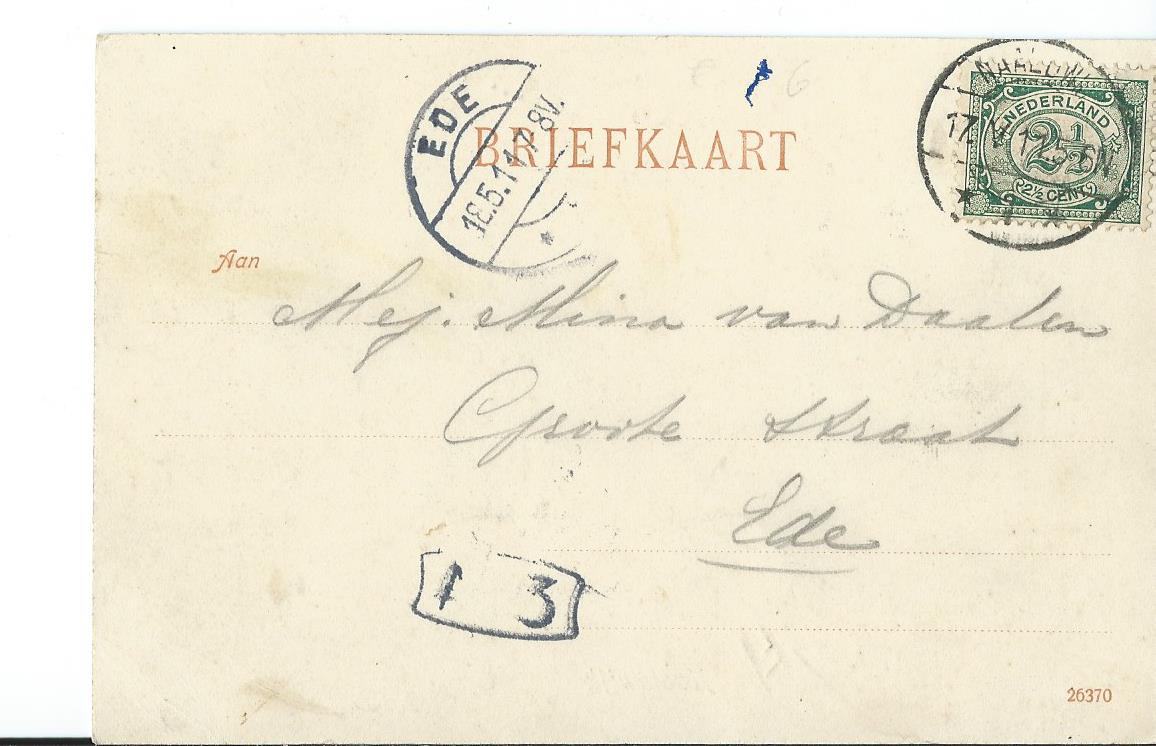 EDE
18.5.11 7-8V.
BRIEFKAART
NEDERLAND
2½
2½ CENT
Aan
Mej. Mina van Daalen
Groote straat
Ede
1 3
26370